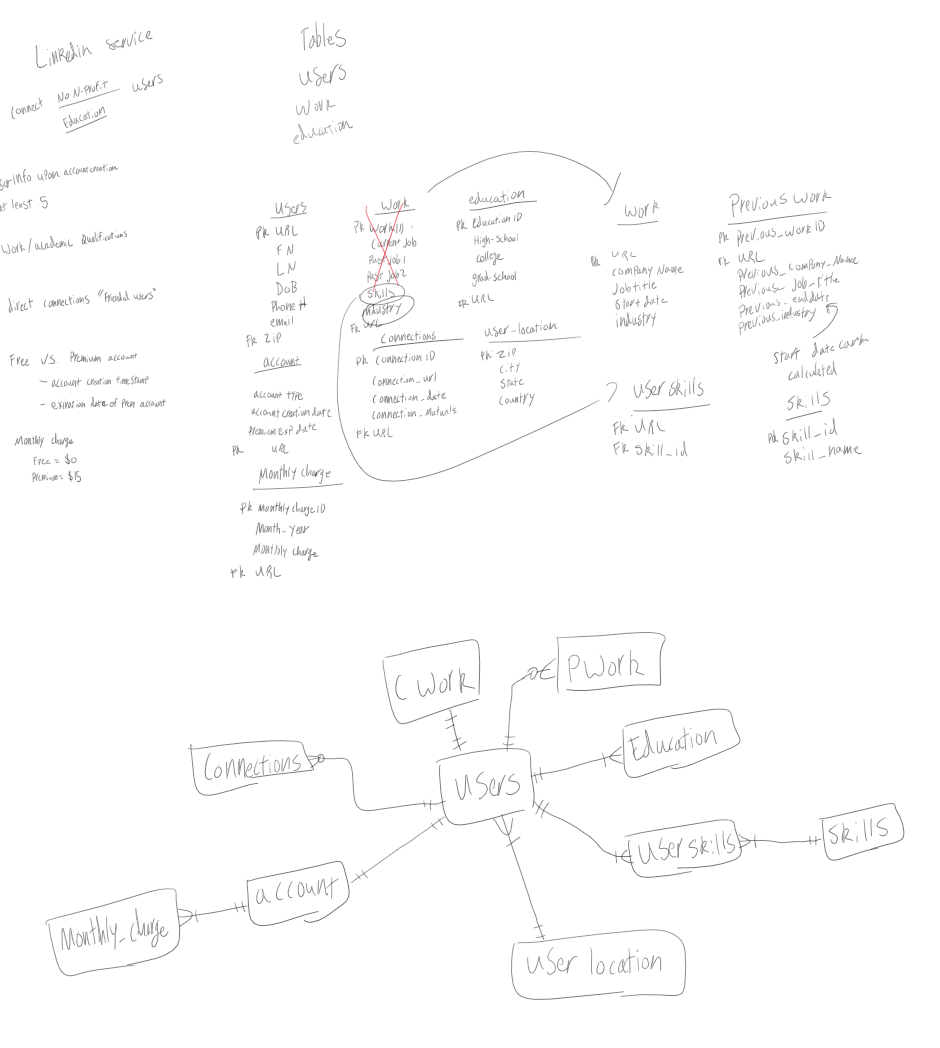 Linkedin service
Connect Non-Profit users
Education
user info upon account creation
at least 5
Work/academic Qualifications
direct connections "Friend users"
Free V.S. Premium account
- account creation timestamp
- expiration date of Prem account
Monthly charge
Free = $0
Premium = $15
Tables
users
work
education
Users
Pk URL
FN
LN
DoB
Phone #
email
Fk ZIP
account
account type
account creation date
Premium exp date
Pk URL
Monthly charge
Pk Monthly charge ID
Month_year
Monthly charge
Fk URL
Work
Pk Work ID
Current Job
Past Job 1
Past Job 2
Skills
industry
Fk URL
Connections
Pk Connection ID
Connection_url
Connection_date
Connection_Mutuals
Fk URL
education
Pk Education ID
High-School
college
grad-school
Fk URL
User-location
Pk ZIP
City
State
Country
Work
Pk URL
Company Name
Job title
Start date
industry
User skills
Fk URL
Fk Skill_id
Previous Work
Pk Previous_work ID
Fk URL
Previous_company_Name
Previous_Job_title
Previous_enddate
previous_industry
Start date can be
calculated
Skills
Pk Skill_id
Skill_name
C Work
PWork
Connections
Users
Education
User skills
Skills
account
Monthly_charge
User location